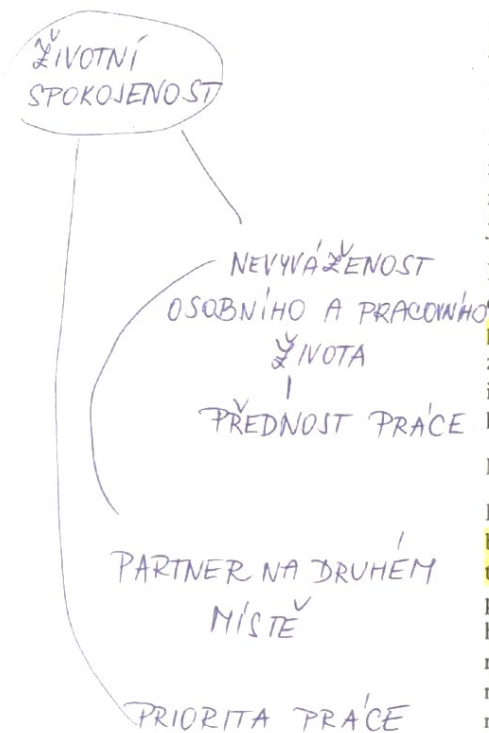 ŽIVOTNÍ
SPOKOJENOST
NEVYVÁŽENOST
OSOBNÍHO A PRACOVNÍHO
ŽIVOTA
PŘEDNOST PRÁCE
PARTNER NA DRUHÉM
MÍSTĚ
PRIORITA PRÁCE